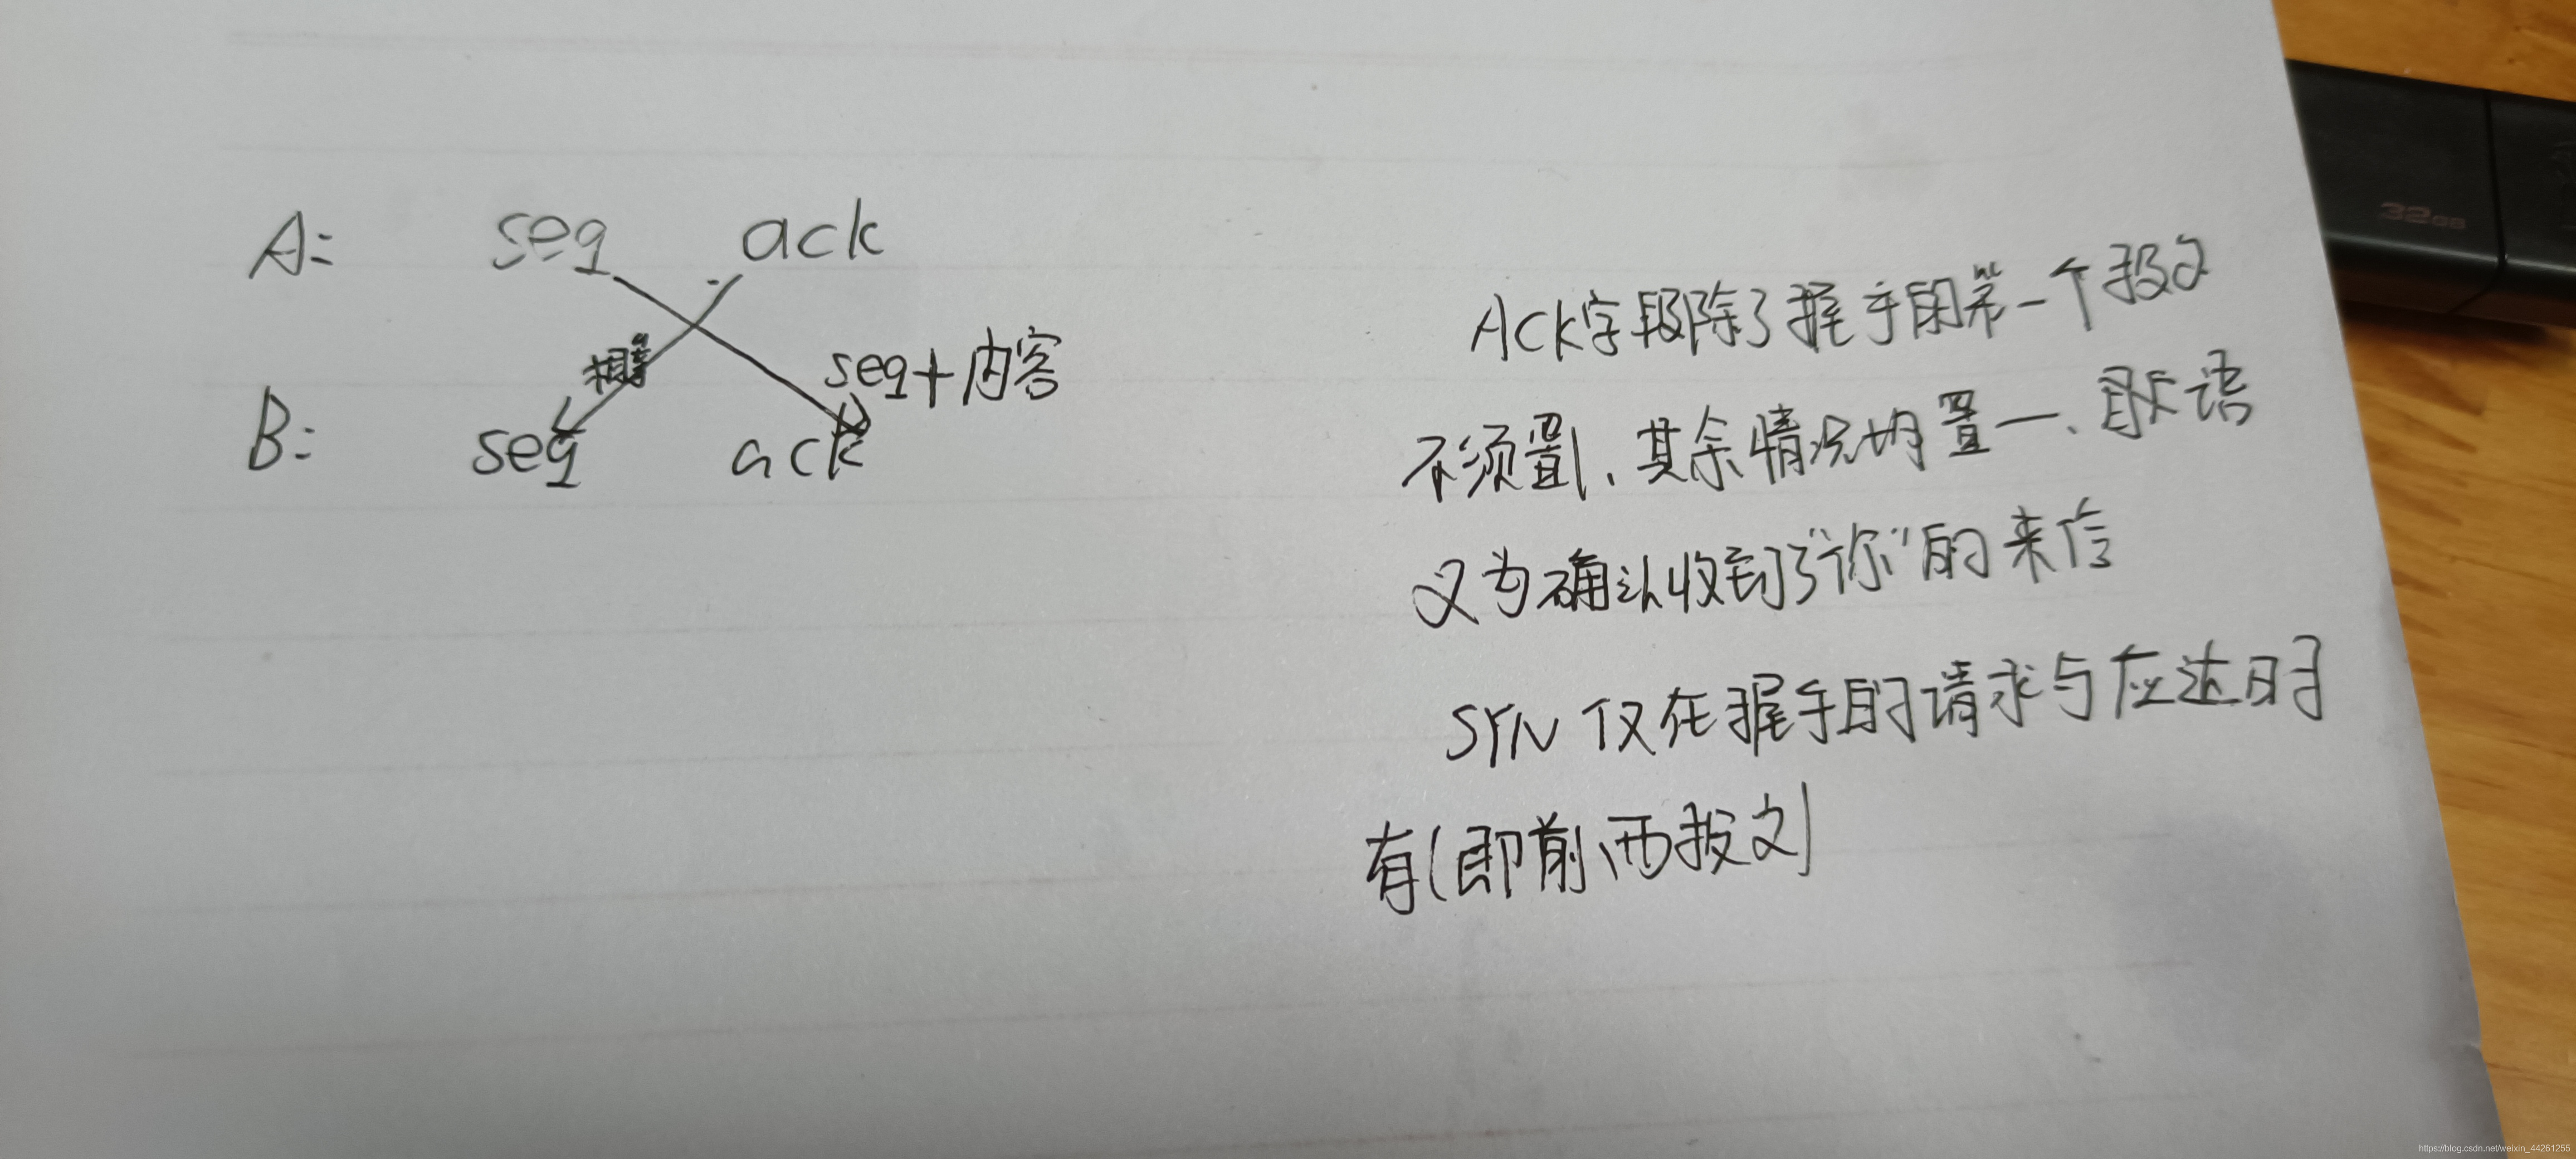 A: seq ack
相等
seq+内容
B: seq ack
ACK字段除了握手的第一个报文
不须置1、其余情况均置一、其语
义为确认收到了"你"的来信
SYN 仅在握手的请求与应达时
有(即前两报文)
32GB
https://blog.csdn.net/weixin_44261255